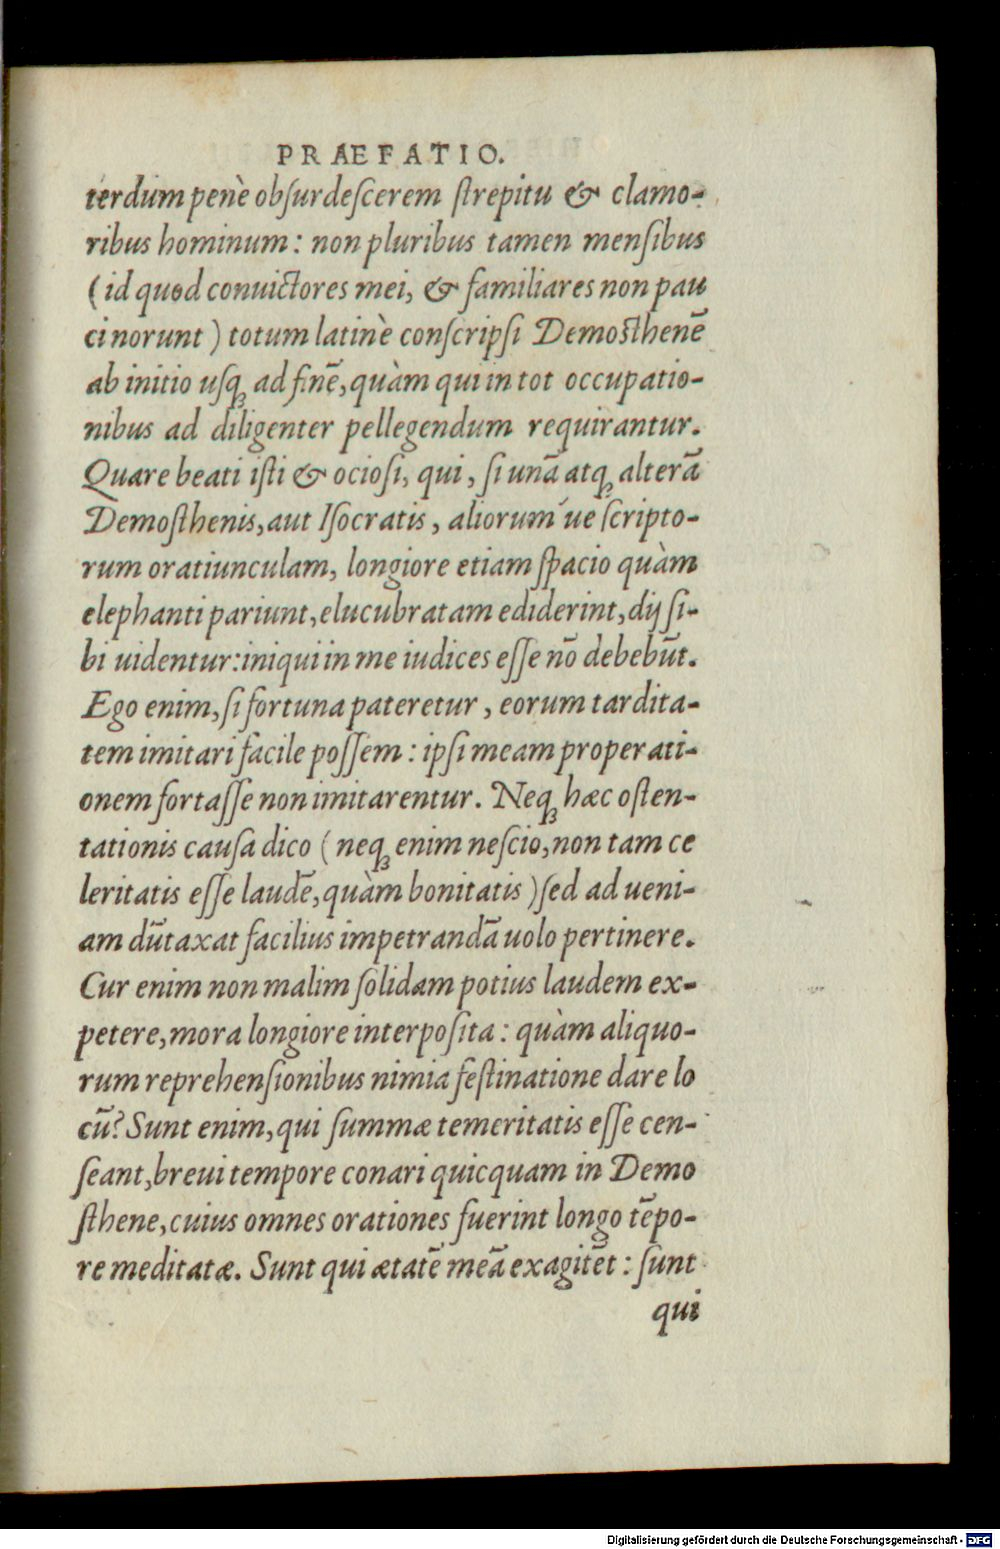 PRAEFATIO.
terdum penè obſurdeſcerem ſtrepitu & clamo-
ribus hominum: non pluribus tamen menſibus
(id quod conuictores mei, & familiares non pau
ci norunt) totum latinè conſcripſi Demoſthenē
ab initio uſq; ad finē, quàm qui in tot occupatio-
nibus ad diligenter pellegendum requirantur.
Quare beati iſti & ocioſi, qui, ſi unā atq; alterā
Demoſthenis, aut Iſocratis, aliorum´ue ſcripto-
rum oratiunculam, longiore etiam ſpacio quàm
elephanti pariunt, elucubratam ediderint, dij ſi-
bi uidentur: iniqui in me iudices eſſe nō debebūt.
Ego enim, ſi fortuna pateretur, eorum tardita-
tem imitari facile poſſem: ipſi meam properati-
onem fortaſſe non imitarentur. Neq; hæc oſten-
tationis cauſa dico (neq; enim neſcio, non tam ce
leritatis eſſe laudē, quàm bonitatis) ſed ad ueni-
am dūtaxat facilius impetrandā uolo pertinere.
Cur enim non malim ſolidam potius laudem ex-
petere, mora longiore interpoſita: quàm aliquo-
rum reprehenſionibus nimia feſtinatione dare lo
cū? Sunt enim, qui ſummæ temeritatis eſſe cen-
ſeant, breui tempore conari quicquam in Demo
ſthene, cuius omnes orationes fuerint longo tēpo-
re meditatæ. Sunt qui ætatē meā exagitēt: ſunt
qui
Digitalisierung gefördert durch die Deutsche Forschungsgemeinschaft - DFG